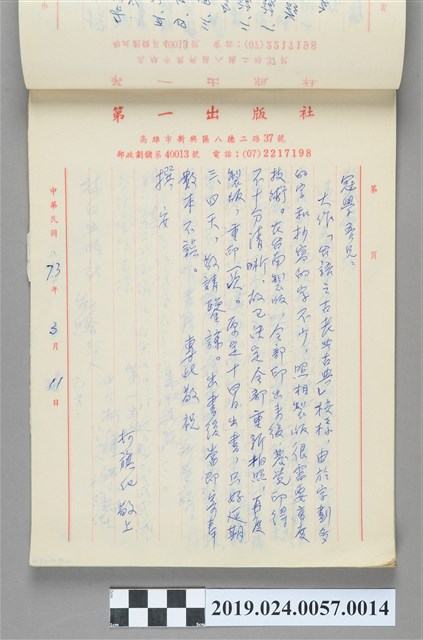 第一出版社
高雄市新興區八德二路37號
郵政劃儲第40013號 電話：(07)2217198
第 頁
冠學吾兄：
大作「台語之古老與古典」校樣，由於字劃多
的字和抄寫的字不少，照相製版很需要高度
技術。在台南製版，全部印出來後，發覺印得
不十分清晰，故已決定全部重新拍照，再度
製版，重印一次。原定十四日出書，只好延期
三、四天，敬請鑒諒。出書後當即寄奉
數本不誤。 專此敬祝
撰安
柯旗化敬上
中華民國73年3月11日
2019.024.0057.0014